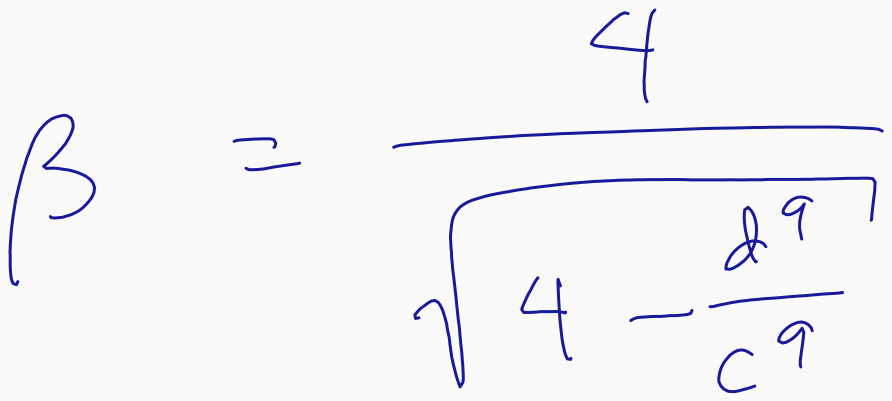 β = \frac{4}{\sqrt{4 - \frac{d^9}{c^9}}}